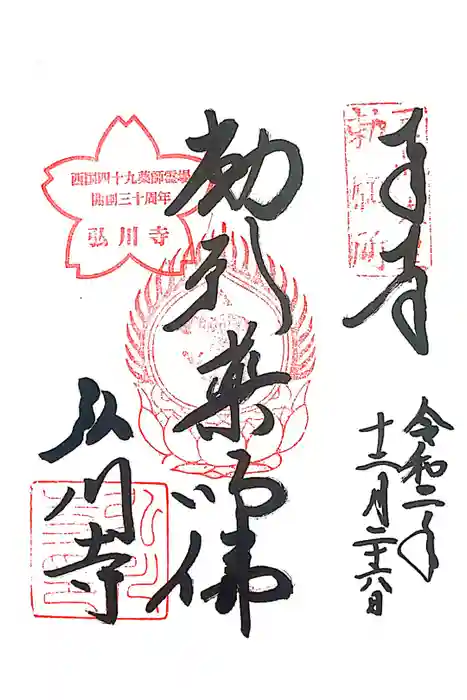 奉拝
勅願所
令和二年
十二月二十六日
薬師佛
西国四十九薬師霊場
開創三十周年
弘川寺
弘川寺